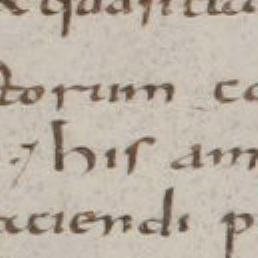 & quantita
torum co
; his am
aciendi p